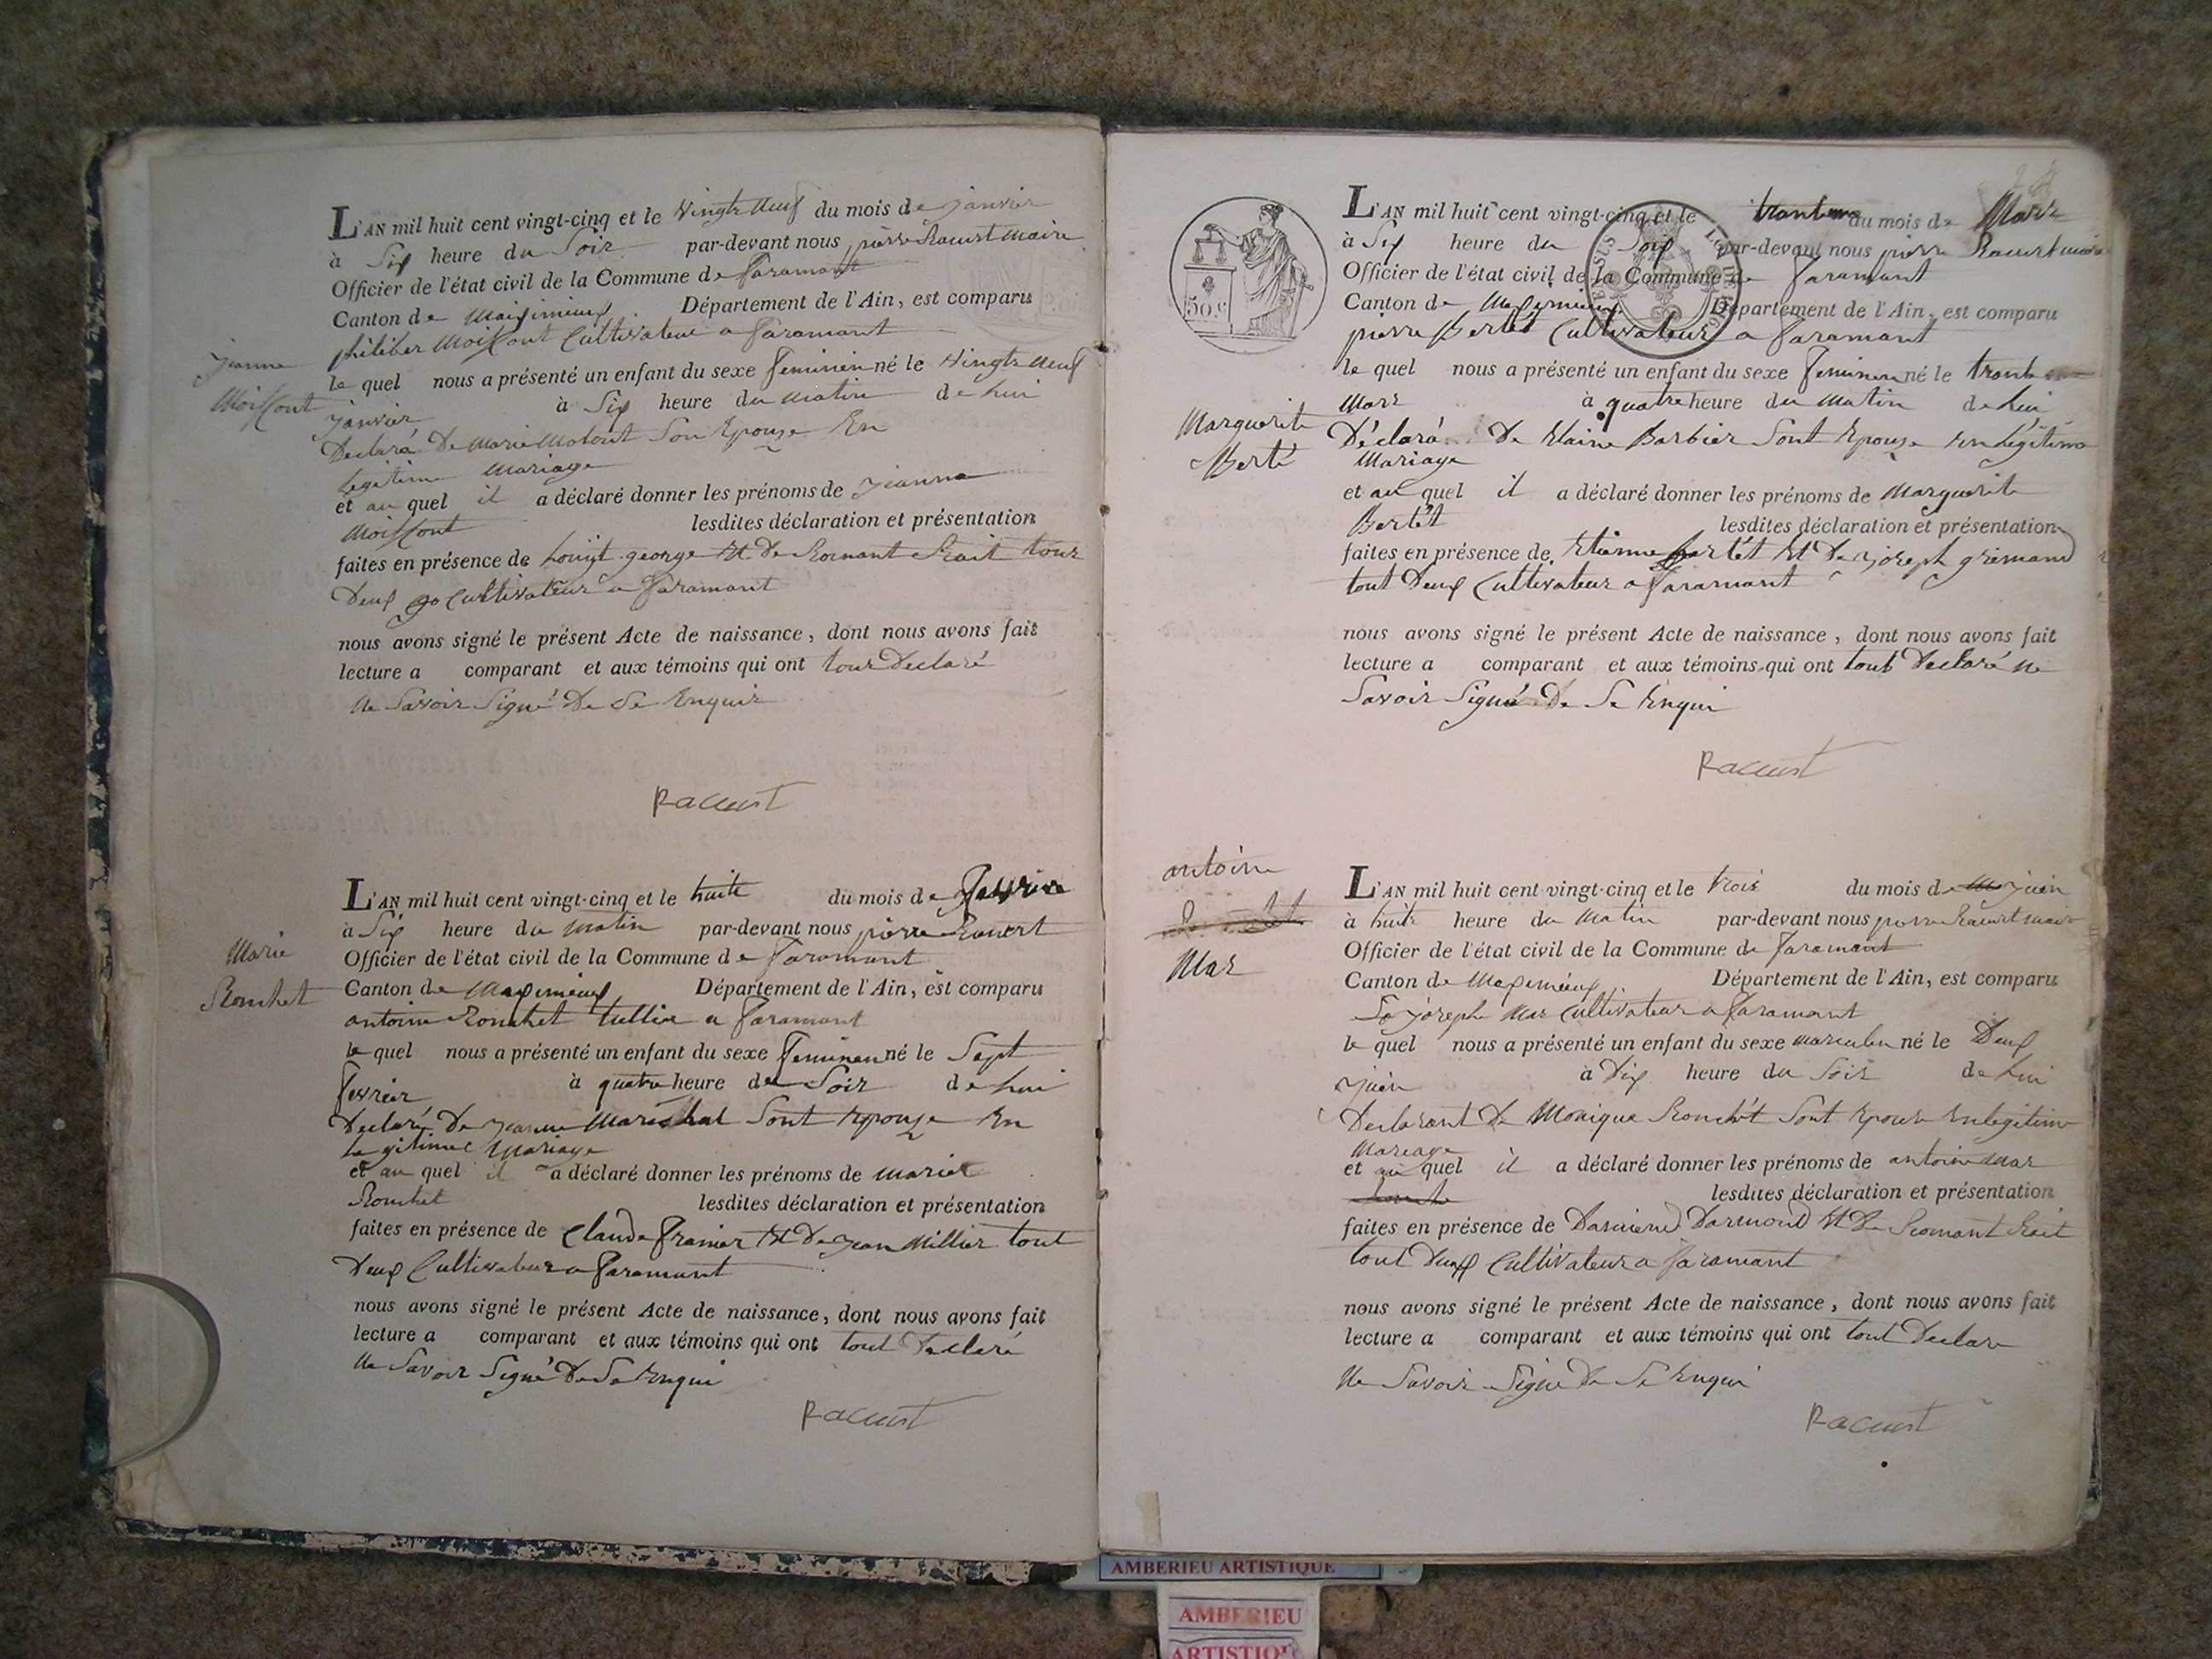 L'AN mil huit cent vingt-cinq et le Vingte Neuf du mois de janvier
à Six heure du Soir par-devant nous pierre Racurt maire
Officier de l'état civil de la Commune de faramant
Canton de Maiximieux Département de l'Ain, est comparu
philiber Moissont Cultivateur a faramant
jeanne
Moissont
le quel nous a présenté un enfant du sexe feminin né le Vingte Neuf
janvier à Six heure du matin de lui
Declará De Marie Molout Son Epouze En
legitime mariage
et au quel il a déclaré donner les prénoms de jeanne
Moissont lesdites déclaration et présentation
faites en présence de george Et De Romant Rait tour
Deux Cultivateur a faramant
nous avons signé le présent Acte de naissance, dont nous avons fait
lecture a comparant et aux témoins qui ont tour Declaré
Ne Savoir Signé De Se Enquir
Racurt
L'AN mil huit cent vingt-cinq et le huite du mois de fevrier
à Six heure du matin par-devant nous pierre Racurt
Marie
Ronchet
Officier de l'état civil de la Commune de faramant
Canton de Maximieux Département de l'Ain, est comparu
antoine Ronchet tullier a faramant
le quel nous a présenté un enfant du sexe feminen né le Sept
fevrier à quatre heure du Soir de lui
Declaré De jeanne Marechal Sont Epouze En
legitime Mariage
et au quel il a déclaré donner les prénoms de mariee
Ronchet lesdites déclaration et présentation
faites en présence de Claude franier Et De jean Millier tout
Deux Cultivateur a faramant
nous avons signé le présent Acte de naissance, dont nous avons fait
lecture a comparant et aux témoins qui ont tout Declaré
Ne Savoir Signé De Se Enqui
Racurt
50.c
L'AN mil huit cent vingt-cinq et le du mois de Mars
à Six heure du Soir par-devant nous pierre Racurt maire
Officier de l'état civil de la Commune de faramant
Canton de Maximieux Département de l'Ain, est comparu
pierre Bertét Cultivateur a faramant
le quel nous a présenté un enfant du sexe feminen né le
Mars à quatre heure du Matin de lui
Marguerite
Berté
Déclará De Elaine Barbier Sont Epouze En legitime
Mariage
et au quel il a déclaré donner les prénoms de Marguerite
Bertét lesdites déclaration et présentation
faites en présence de Etienne Bertét Et De joseph grimand
tout Deux Cultivateur a faramant
nous avons signé le présent Acte de naissance, dont nous avons fait
lecture a comparant et aux témoins qui ont tout Declaré ne
Savoir Signé De Se Enqui
Racurt
antoine
Mar
L'AN mil huit cent vingt-cinq et le trois du mois de juin
à huite heure du Matin par-devant nous pierre Racurt maire
Officier de l'état civil de la Commune de faramant
Canton de Maximieux Département de l'Ain, est comparu
joseph Mar Cultivateur a faramant
le quel nous a présenté un enfant du sexe masculen né le Deux
juin à Dix heure du Soir de lui
Declarant De Monique Ronchét Sont Epouze En legitime
Mareage
et au quel il a déclaré donner les prénoms de antoine Mar
lesdites déclaration et présentation
faites en présence de Darmond Et De Romant Rait
tout Deux Cultivateur a faramant
nous avons signé le présent Acte de naissance, dont nous avons fait
lecture a comparant et aux témoins qui ont tout Declare
Ne Savoir Signé De Se Enqui
Racurt
AMBERIEU ARTISTIQUE
AMBERIEU
ARTISTIQUE